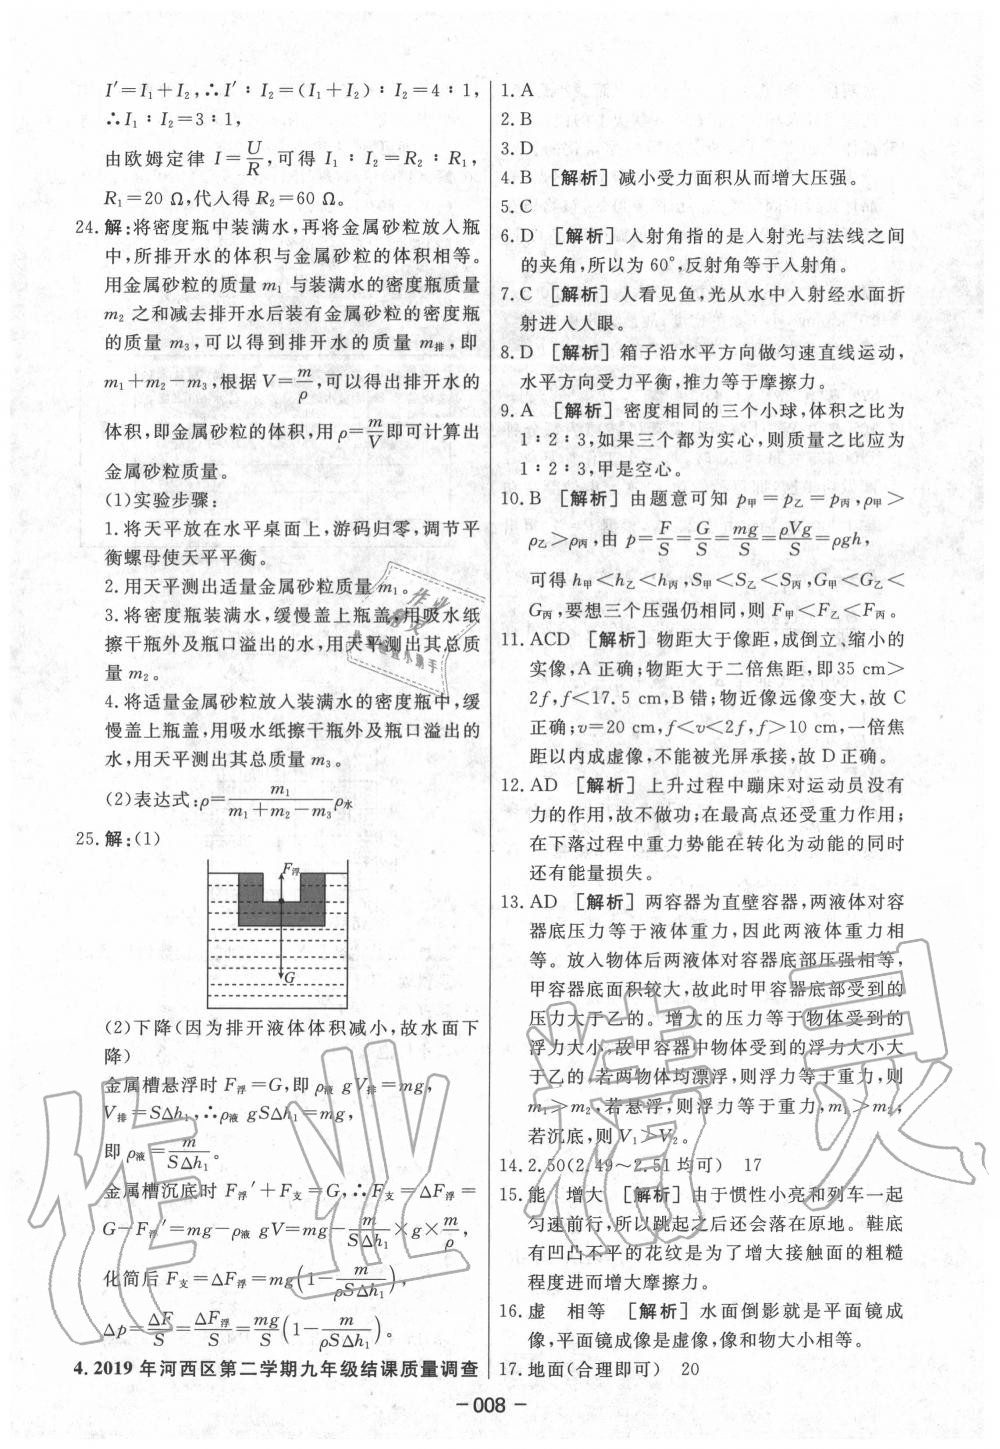 I′=I₁+I₂,∴I′∶I₂=(I₁+I₂)∶I₂=4∶1,
∴I₁∶I₂=3∶1,
由欧姆定律 I=U/R,可得 I₁∶I₂=R₂∶R₁,
R₁=20 Ω,代入得 R₂=60 Ω。
24.解:将密度瓶中装满水,再将金属砂粒放入瓶
中,所排开水的体积与金属砂粒的体积相等。
用金属砂粒的质量 m₁ 与装满水的密度瓶质量
m₂ 之和减去排开水后装有金属砂粒的密度瓶
的质量 m₃,可以得到排开水的质量 m排,即
m₁+m₂-m₃,根据 V=m/ρ,可以得出排开水的
体积,即金属砂粒的体积,用 ρ=m/V即可计算出
金属砂粒质量。
(1)实验步骤:
1.将天平放在水平桌面上,游码归零,调节平
衡螺母使天平平衡。
2.用天平测出适量金属砂粒质量 m₁。
3.将密度瓶装满水,缓慢盖上瓶盖,用吸水纸
擦干瓶外及瓶口溢出的水,用天平测出其总质
量 m₂。
4.将适量金属砂粒放入装满水的密度瓶中,缓
慢盖上瓶盖,用吸水纸擦干瓶外及瓶口溢出的
水,用天平测出其总质量 m₃。
(2)表达式:ρ=m₁/(m₁+m₂-m₃)ρ水
25.解:(1)
F浮
G
(2)下降(因为排开液体体积减小,故水面下
降)
金属槽悬浮时 F浮=G,即 ρ液 gV排=mg,
V排=SΔh₁,∴ρ液 gSΔh₁=mg,
即 ρ液=m/(SΔh₁)。
金属槽沉底时 F浮′+F支=G,∴F支=ΔF浮=
G-F浮′=mg-ρ液 gV=mg-m/(SΔh₁)×g×m/ρ,
化简后 F支=ΔF浮=mg(1-m/(ρSΔh₁)),
Δp=ΔF/S=ΔF浮/S=mg/S(1-m/(ρSΔh₁))。
4. 2019 年河西区第二学期九年级结课质量调查
1.A
2.B
3.D
4.B [解析]减小受力面积从而增大压强。
5.C
6.D [解析]入射角指的是入射光与法线之间
的夹角,所以为 60°,反射角等于入射角。
7.C [解析]人看见鱼,光从水中入射经水面折
射进入人眼。
8.D [解析]箱子沿水平方向做匀速直线运动,
水平方向受力平衡,推力等于摩擦力。
9.A [解析]密度相同的三个小球,体积之比为
1∶2∶3,如果三个都为实心,则质量之比应为
1∶2∶3,甲是空心。
10.B [解析]由题意可知 p甲=p乙=p丙,ρ甲>
ρ乙>ρ丙,由 p=F/S=G/S=mg/S=ρVg/S=ρgh,
可得 h甲<h乙<h丙,S甲<S乙<S丙,G甲<G乙<
G丙,要想三个压强仍相同,则 F甲<F乙<F丙。
11.ACD [解析]物距大于像距,成倒立、缩小的
实像,A 正确;物距大于二倍焦距,即35 cm>
2f,f<17.5 cm,B 错;物近像远像变大,故 C
正确;v=20 cm,f<v<2f,f>10 cm,一倍焦
距以内成虚像,不能被光屏承接,故 D正确。
12.AD [解析]上升过程中蹦床对运动员没有
力的作用,故不做功;在最高点还受重力作用;
在下落过程中重力势能在转化为动能的同时
还有能量损失。
13.AD [解析]两容器为直壁容器,两液体对容
器底压力等于液体重力,因此两液体重力相
等。放入物体后两液体对容器底部压强相等,
甲容器底面积较大,故此时甲容器底部受到的
压力大于乙的。增大的压力等于物体受到的
浮力大小,故甲容器中物体受到的浮力大小大
于乙的。若两物体均漂浮,则浮力等于重力,则
m₁>m₂,若悬浮,则浮力等于重力,m₁>m₂,
若沉底,则 V₁>V₂。
14.2.50(2.49～2.51均可) 17
15.能 增大 [解析]由于惯性小亮和列车一起
匀速前行,所以跳起之后还会落在原地。鞋底
有凹凸不平的花纹是为了增大接触面的粗糙
程度进而增大摩擦力。
16.虚 相等 [解析]水面倒影就是平面镜成
像,平面镜成像是虚像,像和物大小相等。
17.地面(合理即可) 20
- 008 -
作业精灵